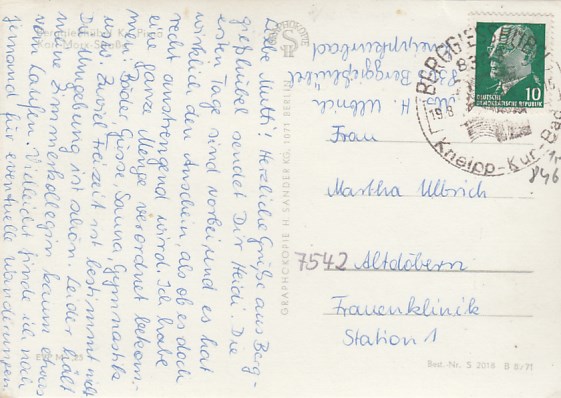 Liebe Mutti! Herzliche Grüße aus Berg-
gießhübel sendet Dir Heidi. Die
ersten Tage sind vorbei und es hat
wirklich den Anschein, als ob es doch
recht anstrengend wird. Ich habe
eine ganze Menge verordnet bekom-
men: Bäder, Güsse, Sauna, Gymnastik
usw. Zuviel Freizeit ist bestimmt nicht
Die Umgebung ist schön. Leider hält
meine Zimmerkollegin kaum etwas
vom Laufen. Vielleicht finde ich noch
jemand für eventuelle Wanderungen.
H. Ulbrich
8305 Berggießhübel
Kneippkurbad
GRAPHOKOPIE H. SANDER KG, 1071 BERLIN
BERGGIESSHÜBEL
Kneipp-Kur-Bad
10
DEUTSCHE
DEMOKRATISCHE REPUBLIK
Frau
Martha Ulbrich
7542 Altdöbern
Frauenklinik
Station 1
846
Best.-Nr. S 2018 B 8/71